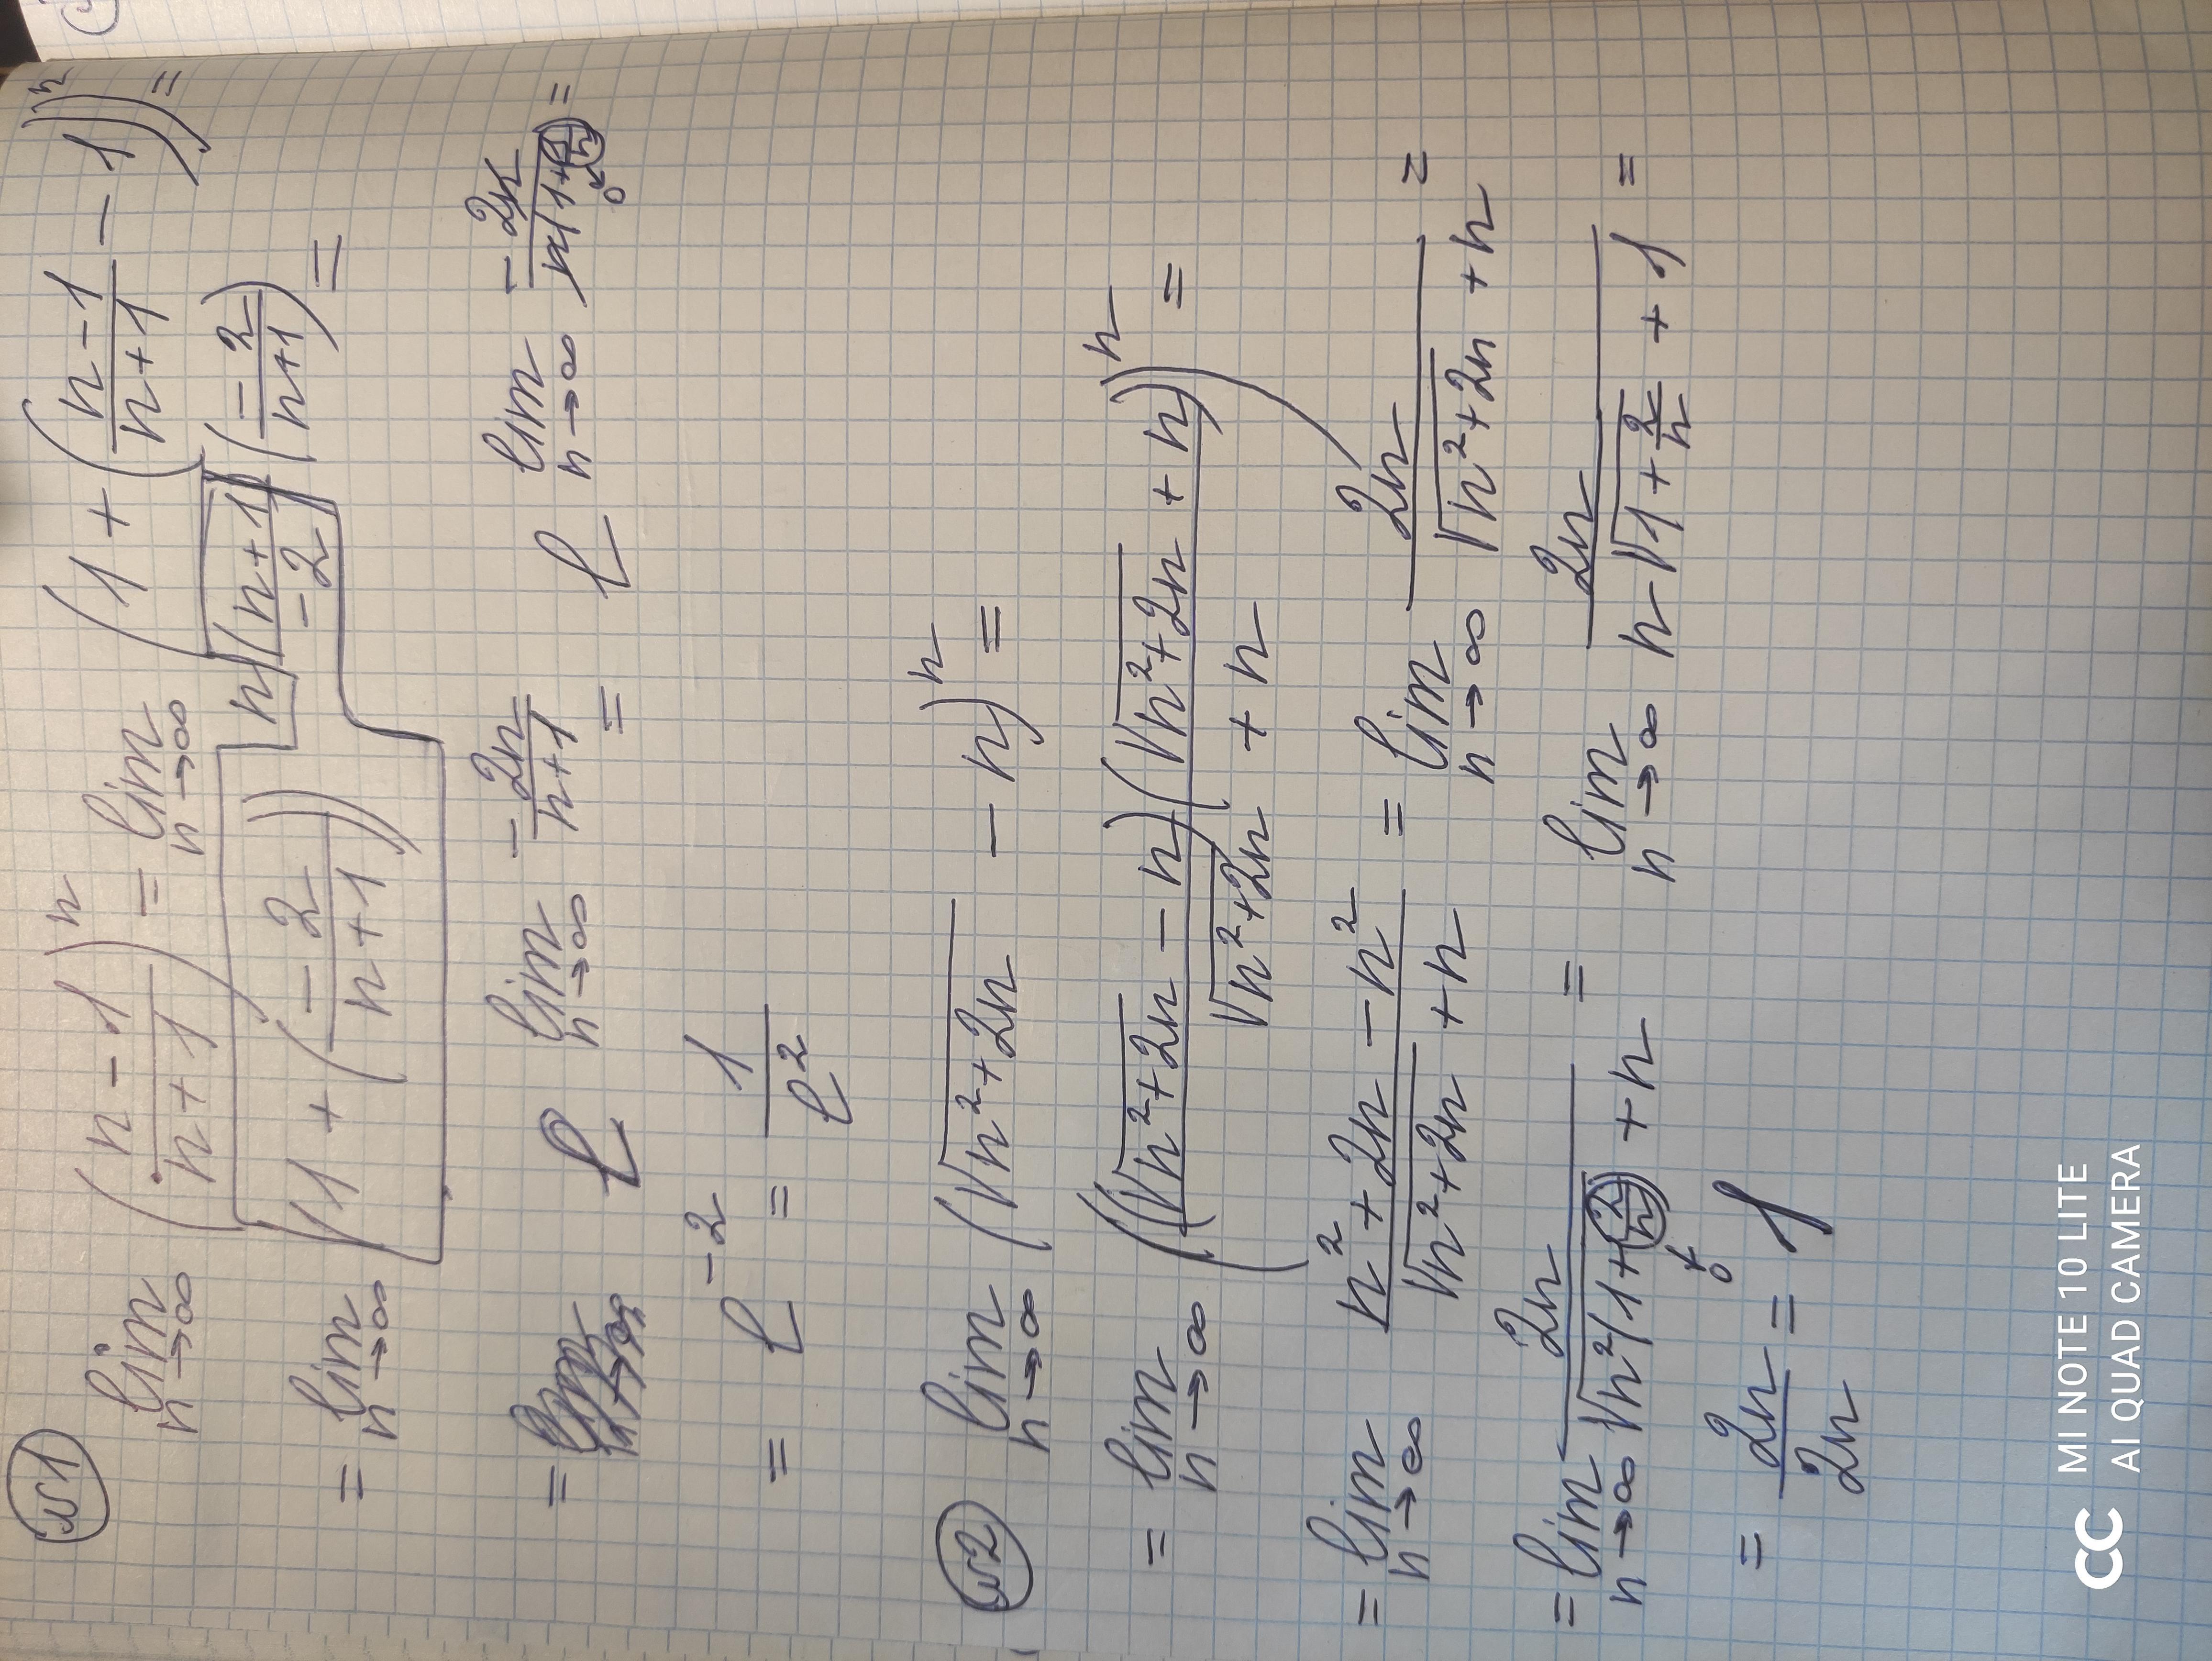 №1 lim n→∞ ((n-1)/(n+1))^n = lim n→∞ (1 + ((n-1)/(n+1) - 1))^n =
= lim n→∞ ((1 + (-2/(n+1)))^((n+1)/-2))^(n(-2/(n+1))) =
= e^(lim n→∞ -2n/(n+1)) = e^(lim n→∞ -2n/(n(1+1/n))) =
0
= e^-2 = 1/e^2
№2 lim n→∞ (√(n^2+2n) - n)^n =
= lim n→∞ (((√(n^2+2n) - n)(√(n^2+2n) + n))/(√(n^2+2n) + n))^n =
= lim n→∞ (n^2+2n-n^2)/(√(n^2+2n) + n) = lim n→∞ 2n/(√(n^2+2n) + n) =
= lim n→∞ 2n/(√(n^2(1+(2/n))) + n) = lim n→∞ 2n/(n√(1+2/n) + 1) =
0
= 2n/2n = 1
MI NOTE 10 LITE
AI QUAD CAMERA